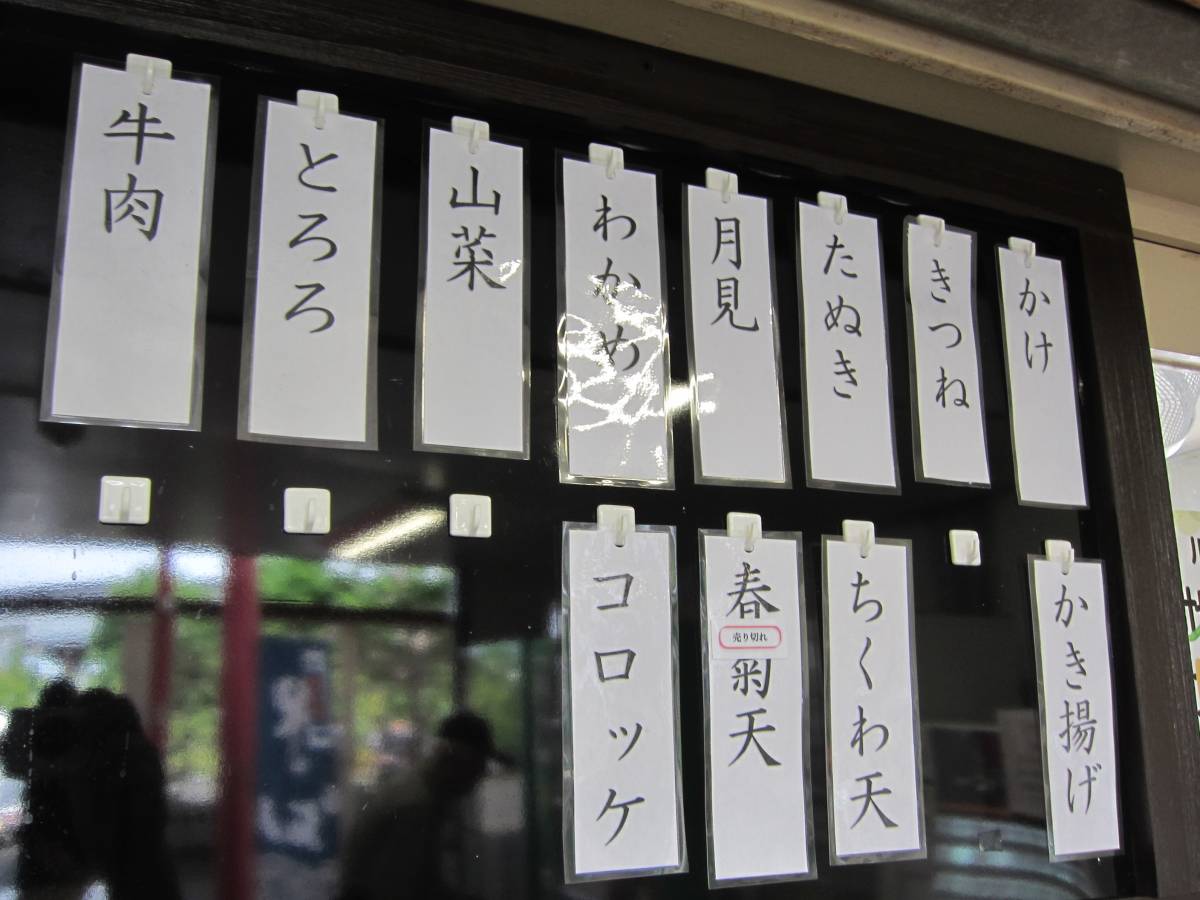 かけ
きつね
たぬき
月見
わかめ
山菜
とろろ
牛肉
かき揚げ
ちくわ天
春菊天
売り切れ
コロッケ